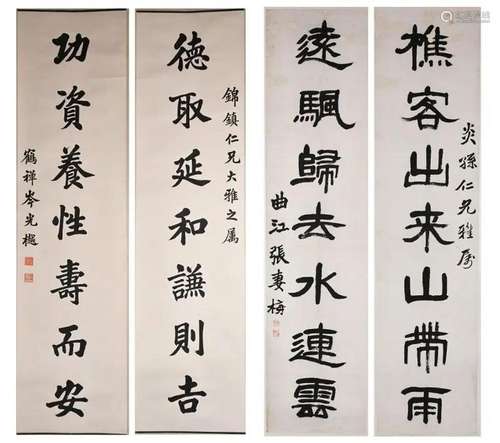 樵客出来山帶雨
炎孫仁兄雅屬
遠颿歸去水連雲
曲江張妻梅
德取延和謙則吉
錦鎮仁兄大雅之属
功資養性壽而安
鶴禅岑光樾